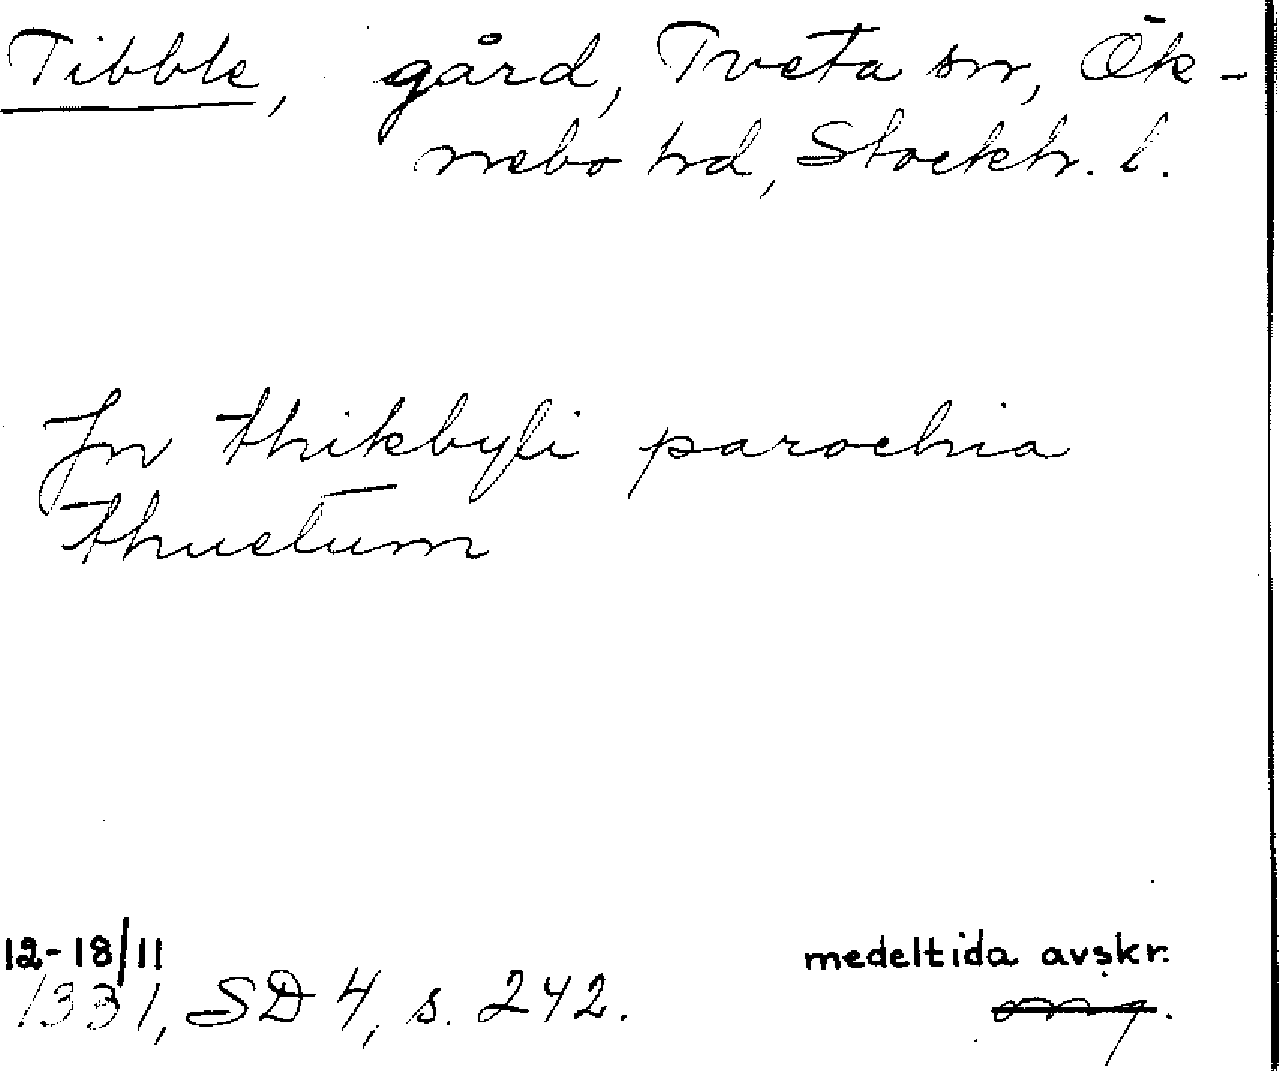 Tibble, gård, Tveta sn, Ök-
nebo hd, Stockh. l.
Jn thikbyli parochia
thuetum
12-18/11
medeltida avskr.
1331, SD 4, s. 242.